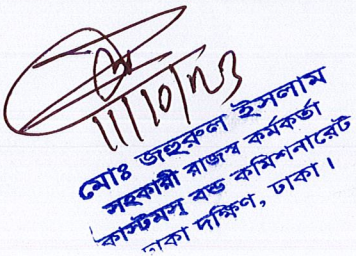 11/10/23
মোঃ জহুরুল ইসলাম
সহকারী রাজস্ব কর্মকর্তা
কাস্টমস্ বন্ড কমিশনারেট
ঢাকা দক্ষিণ, ঢাকা।